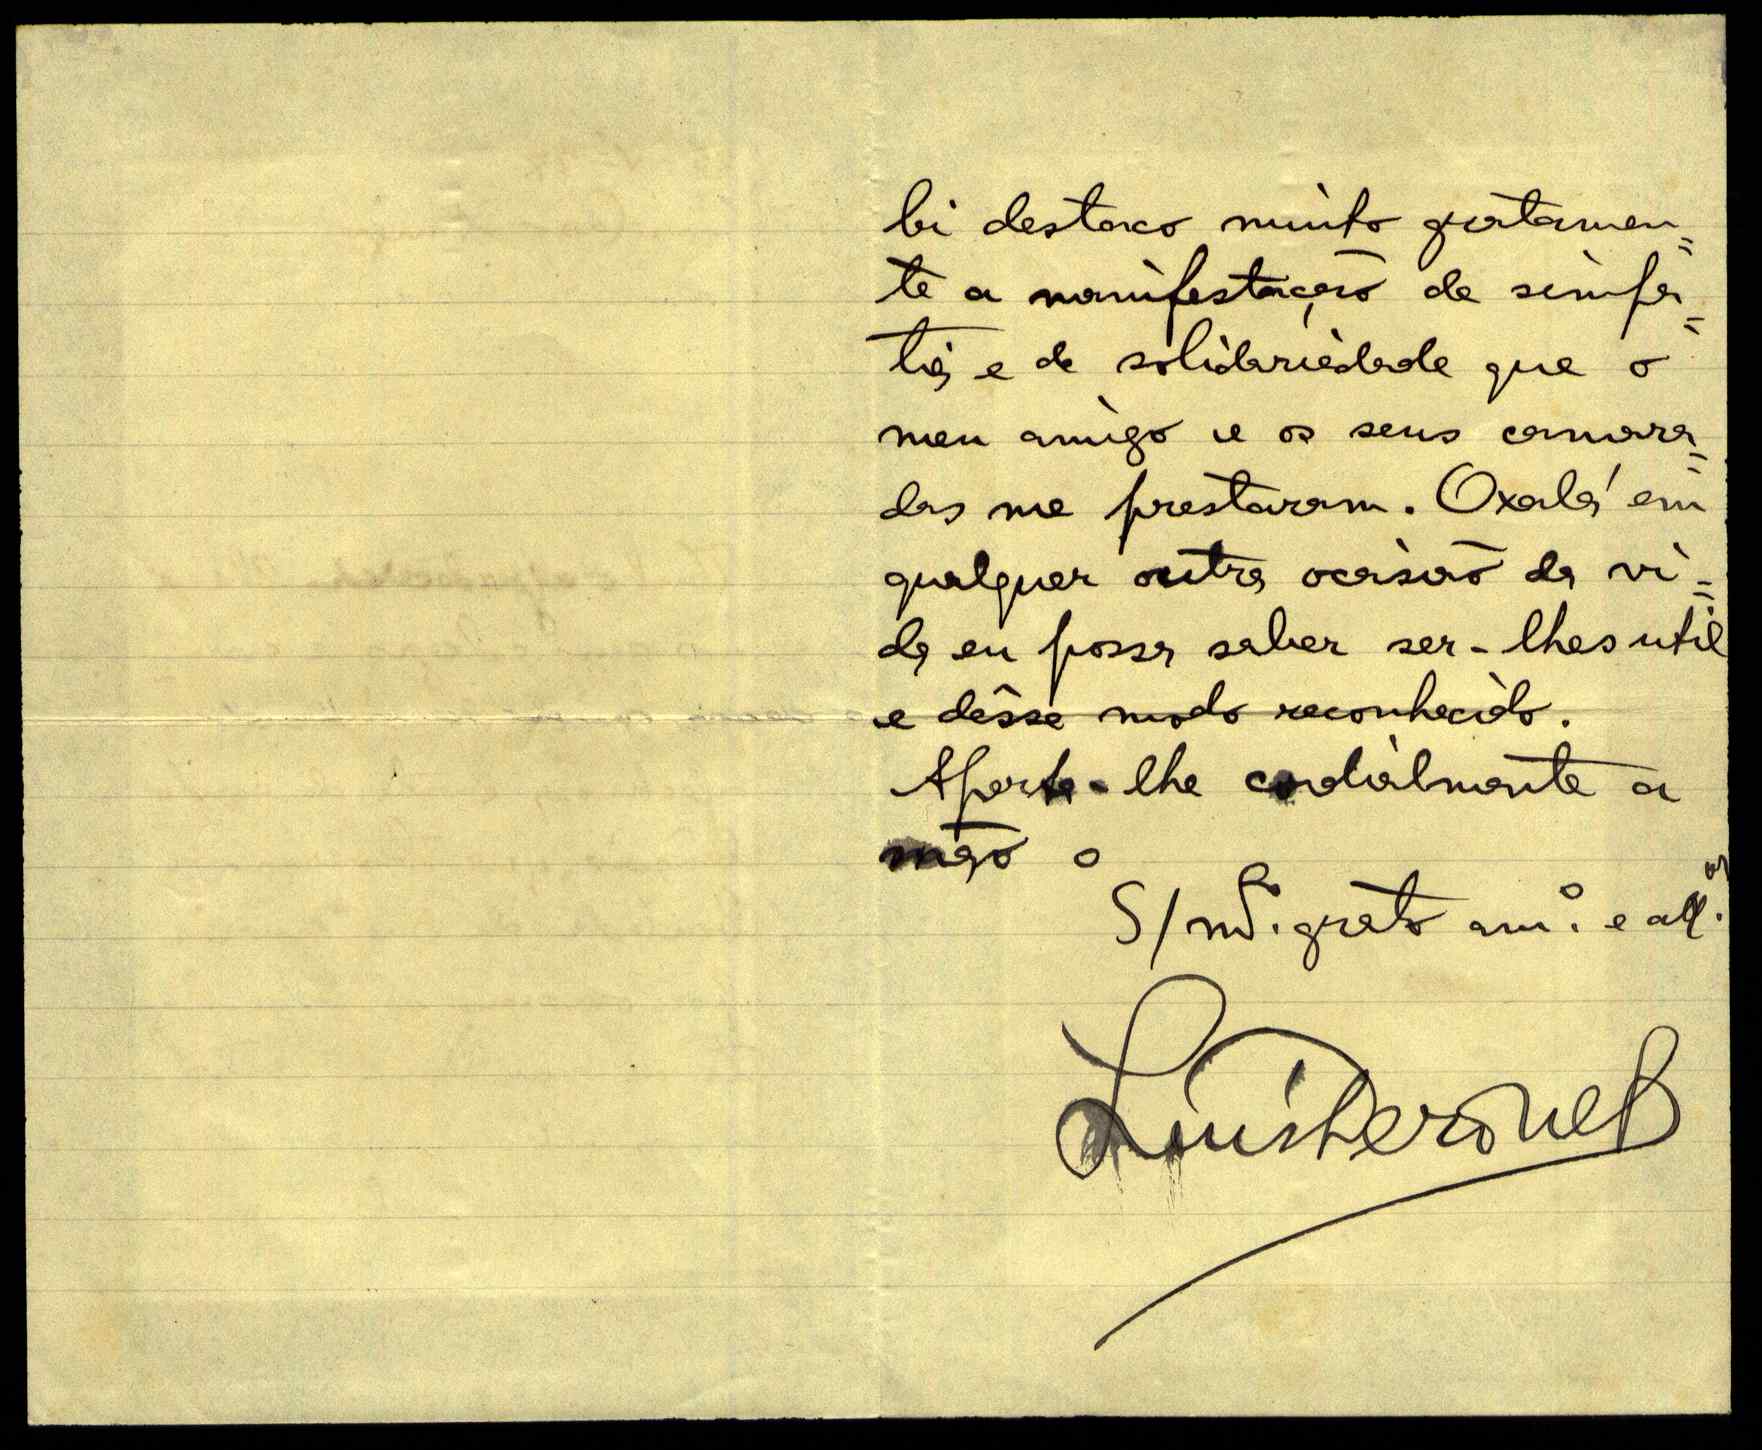 bi destaco muito gratamen=
te a manifestação de simpa=
tia e de solidariedade que o
meu amigo e os seus camara=
das me prestaram. Oxalá em
qualquer outra ocasião da vi=
da eu possa saber ser-lhes util
e dêsse modo reconhecido.
Aperta-lhe cordialmente a
mão o
S/ mto. grato am.o e